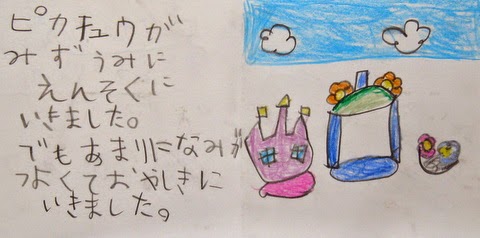 ピカチュウが
みずうみに
えんそくに
いきました。
でもあまりになみが
つよくておやしきに
いきました。